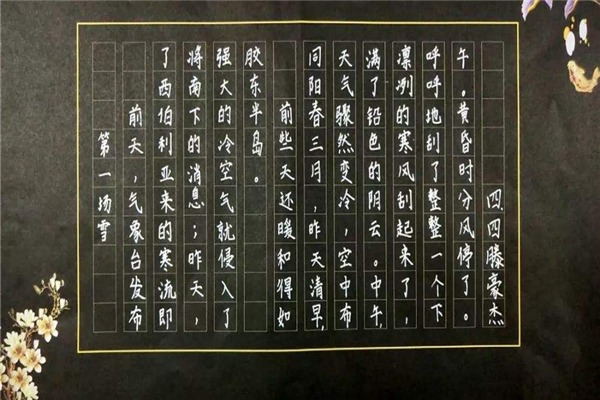 第一场雪
前天，气象台发布
了西伯利亚来的寒流即
将南下的消息；昨天，
强大的冷空气就侵入了
胶东半岛。
前些天还暖和得如
同阳春三月，昨天清早，
天气骤然变冷，空中布
满了铅色的阴云。中午，
凛冽的寒风刮起来了，
呼呼地刮了整整一个下
午。黄昏时分风停了。
四四滕豪杰